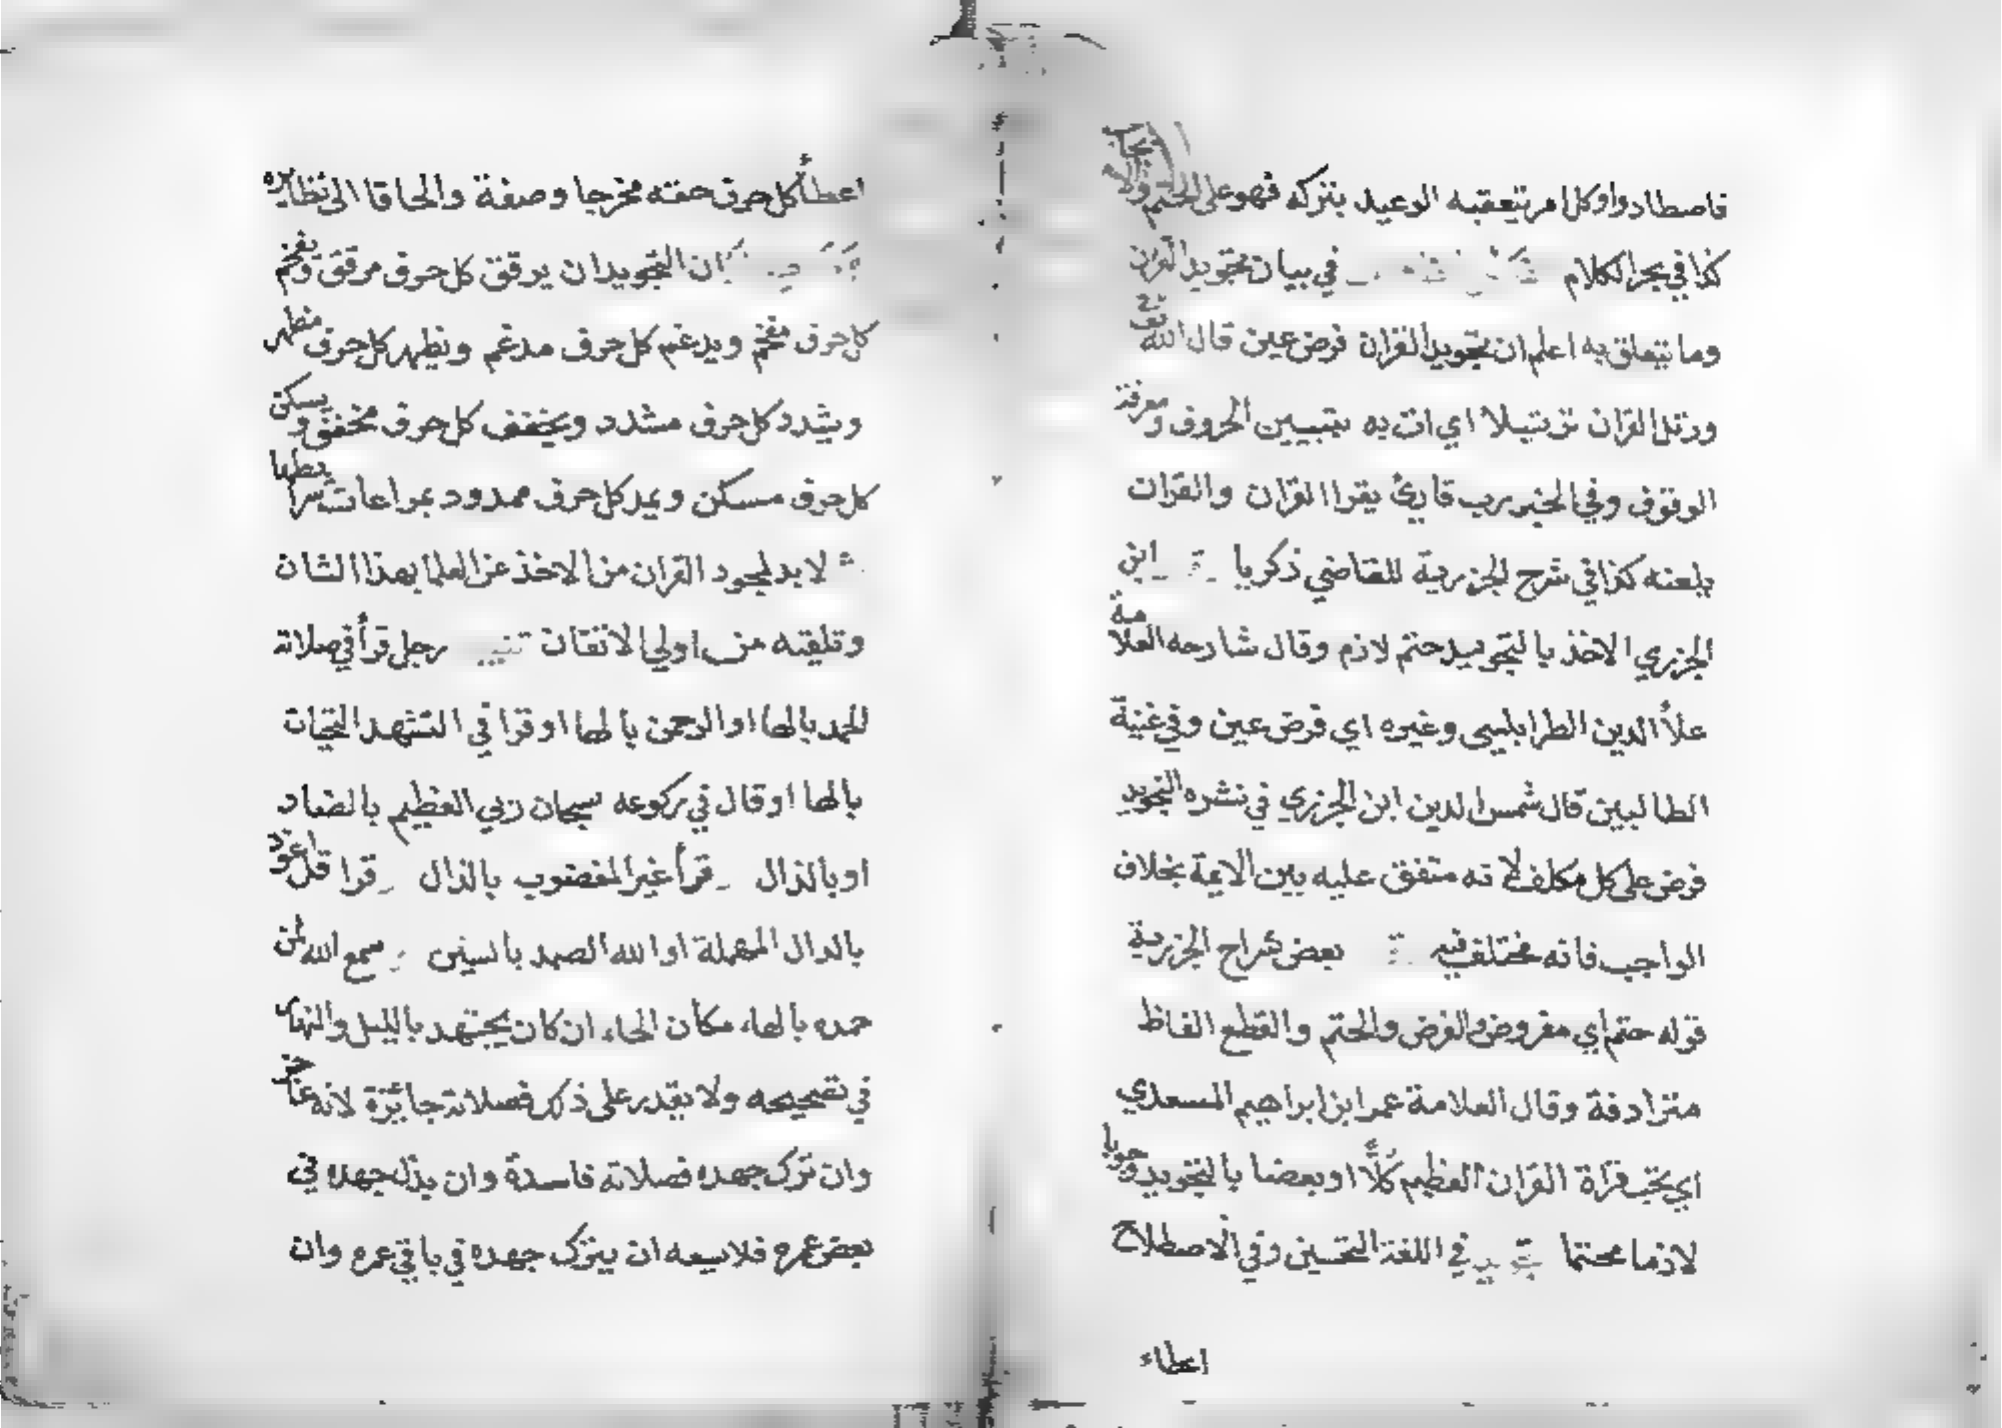 فاصطادوا وكل امر تتعقبه الوعيد بتركه فهو على الحتم
كذا في بحر الكلام في بيان تجويد القران
وما يتعلق به اعلم ان تجويد القران فرض عين قال الله تع
ورتل القران ترتيلا اي ائت به بتبيين الحروف ومعرفة
الوقوف وفي الخبر رب قارئ يقرا القران والقران
يلعنه كذا في شرح الجزرية للقاضي زكريا ابن
الجزري الاخذ بالتجويد حتم لازم وقال شارحه العلامة
علأ الدين الطرابلسي وغيره اي فرض عين وفي غنية
الطالبين قال شمس الدين ابن الجزري في نشره التجويد
فرض على كل مكلف لانه متفق عليه بين الايمة بخلاف
الواجب فانه مختلف فيه بعض شراح الجزرية
قوله حتم اي مفروض والفرض والحتم والقطع الفاظ
مترادفة وقال العلامة عمر ابن ابراهيم المسعدي
اي يجب قراة القران العظيم كلًّا او بعضا بالتجويد وجوبا
لازما محتما في اللغة التحسين وفي الاصطلاح
اعطاء
اعطأ كل حرف حقه مخرجا وصفة والحاقا الى نظايره
ان التجويد ان يرقق كل حرف مرقق ويفخم
كل حرف مفخم ويدغم كل حرف مدغم ويظهر كل حرف مظهر
ويشدد كل حرف مشدد ويخفف كل حرف مخفف ويسكن
كل حرف مسكن ويمد كل حرف ممدود بمراعات شرايطها
لا بد لمجود القران من الاخذ عن العلما بهذا الشان
وتلقيه من اولي الاتقان تنبيه رجل قرأ في صلاته
الحمد بالها او الرحمن بالها او قرا في التشهد التحيات
بالها او قال في ركوعه سبحان ربي العظيم بالضاد
او بالذال قرأ غير المغضوب بالذال قرا قل اعوذ
بالدال المهملة او الله الصمد بالسين سمع الله لمن
حمده بالهاء مكان الحاء ان كان يجتهد بالليل والنهار
في تصحيحه ولا يقدر على ذلك فصلاته جائزة لانه عاجز
وان ترك جهده فصلاته فاسدة وان بذل جهده في
بعض عمره فلا يسعه ان يترك جهده في باقي عمره وان